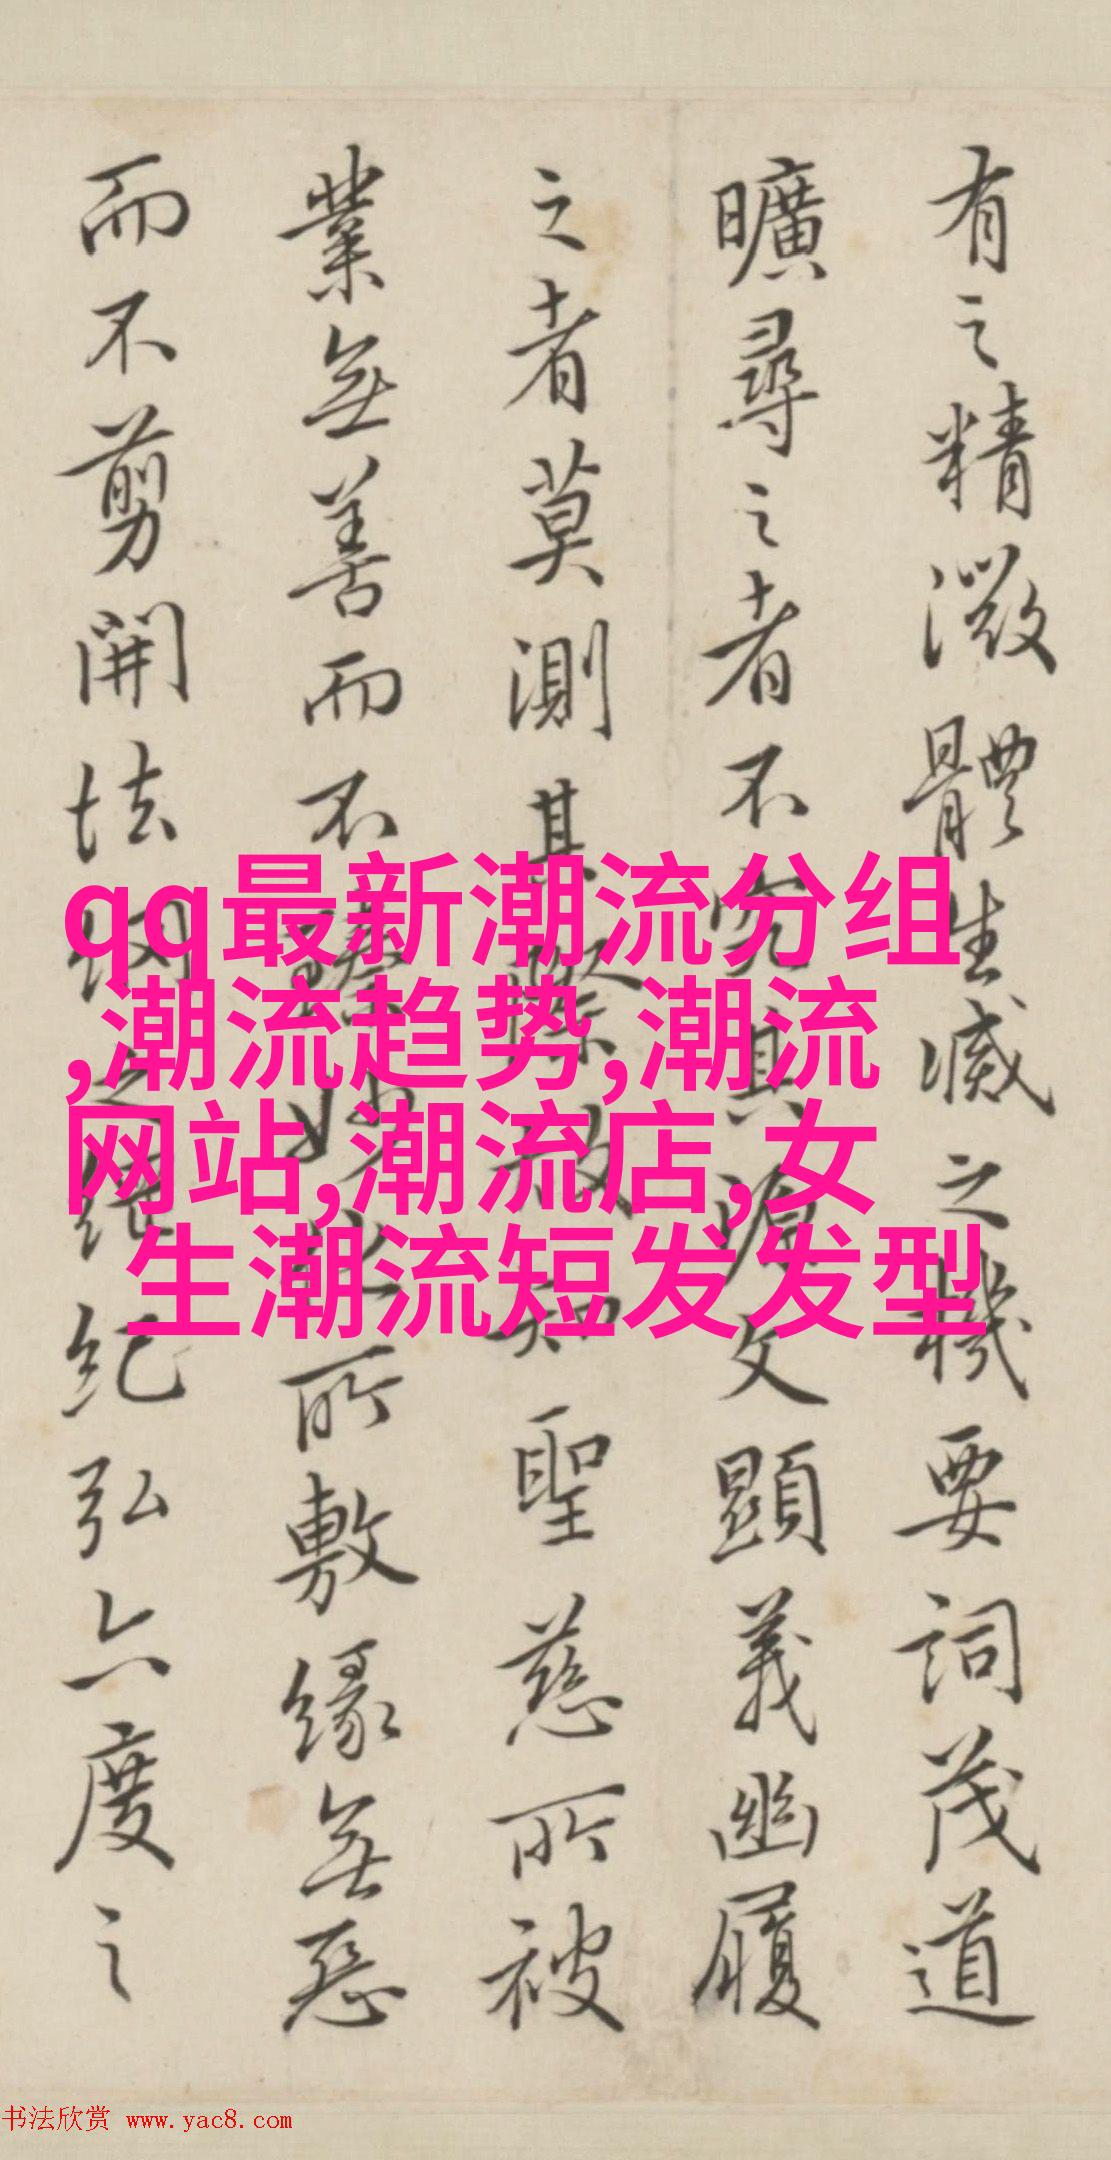 有之精微體生滅之機要詞茂道
曠尋之者不究其源文顯義幽履
之者莫測其際故知聖慈所被
業無善而不臻妙化所敷緣無惡
而不剪開法網之綱紀弘六度之
qq最新潮流分组
,潮流趋势,潮流
网站,潮流店,女
生潮流短发发型
书法欣赏 www.yac8.com